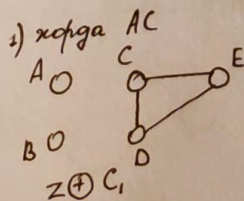 1) хорда AC
A
C
E
B
D
Z⊕C₁